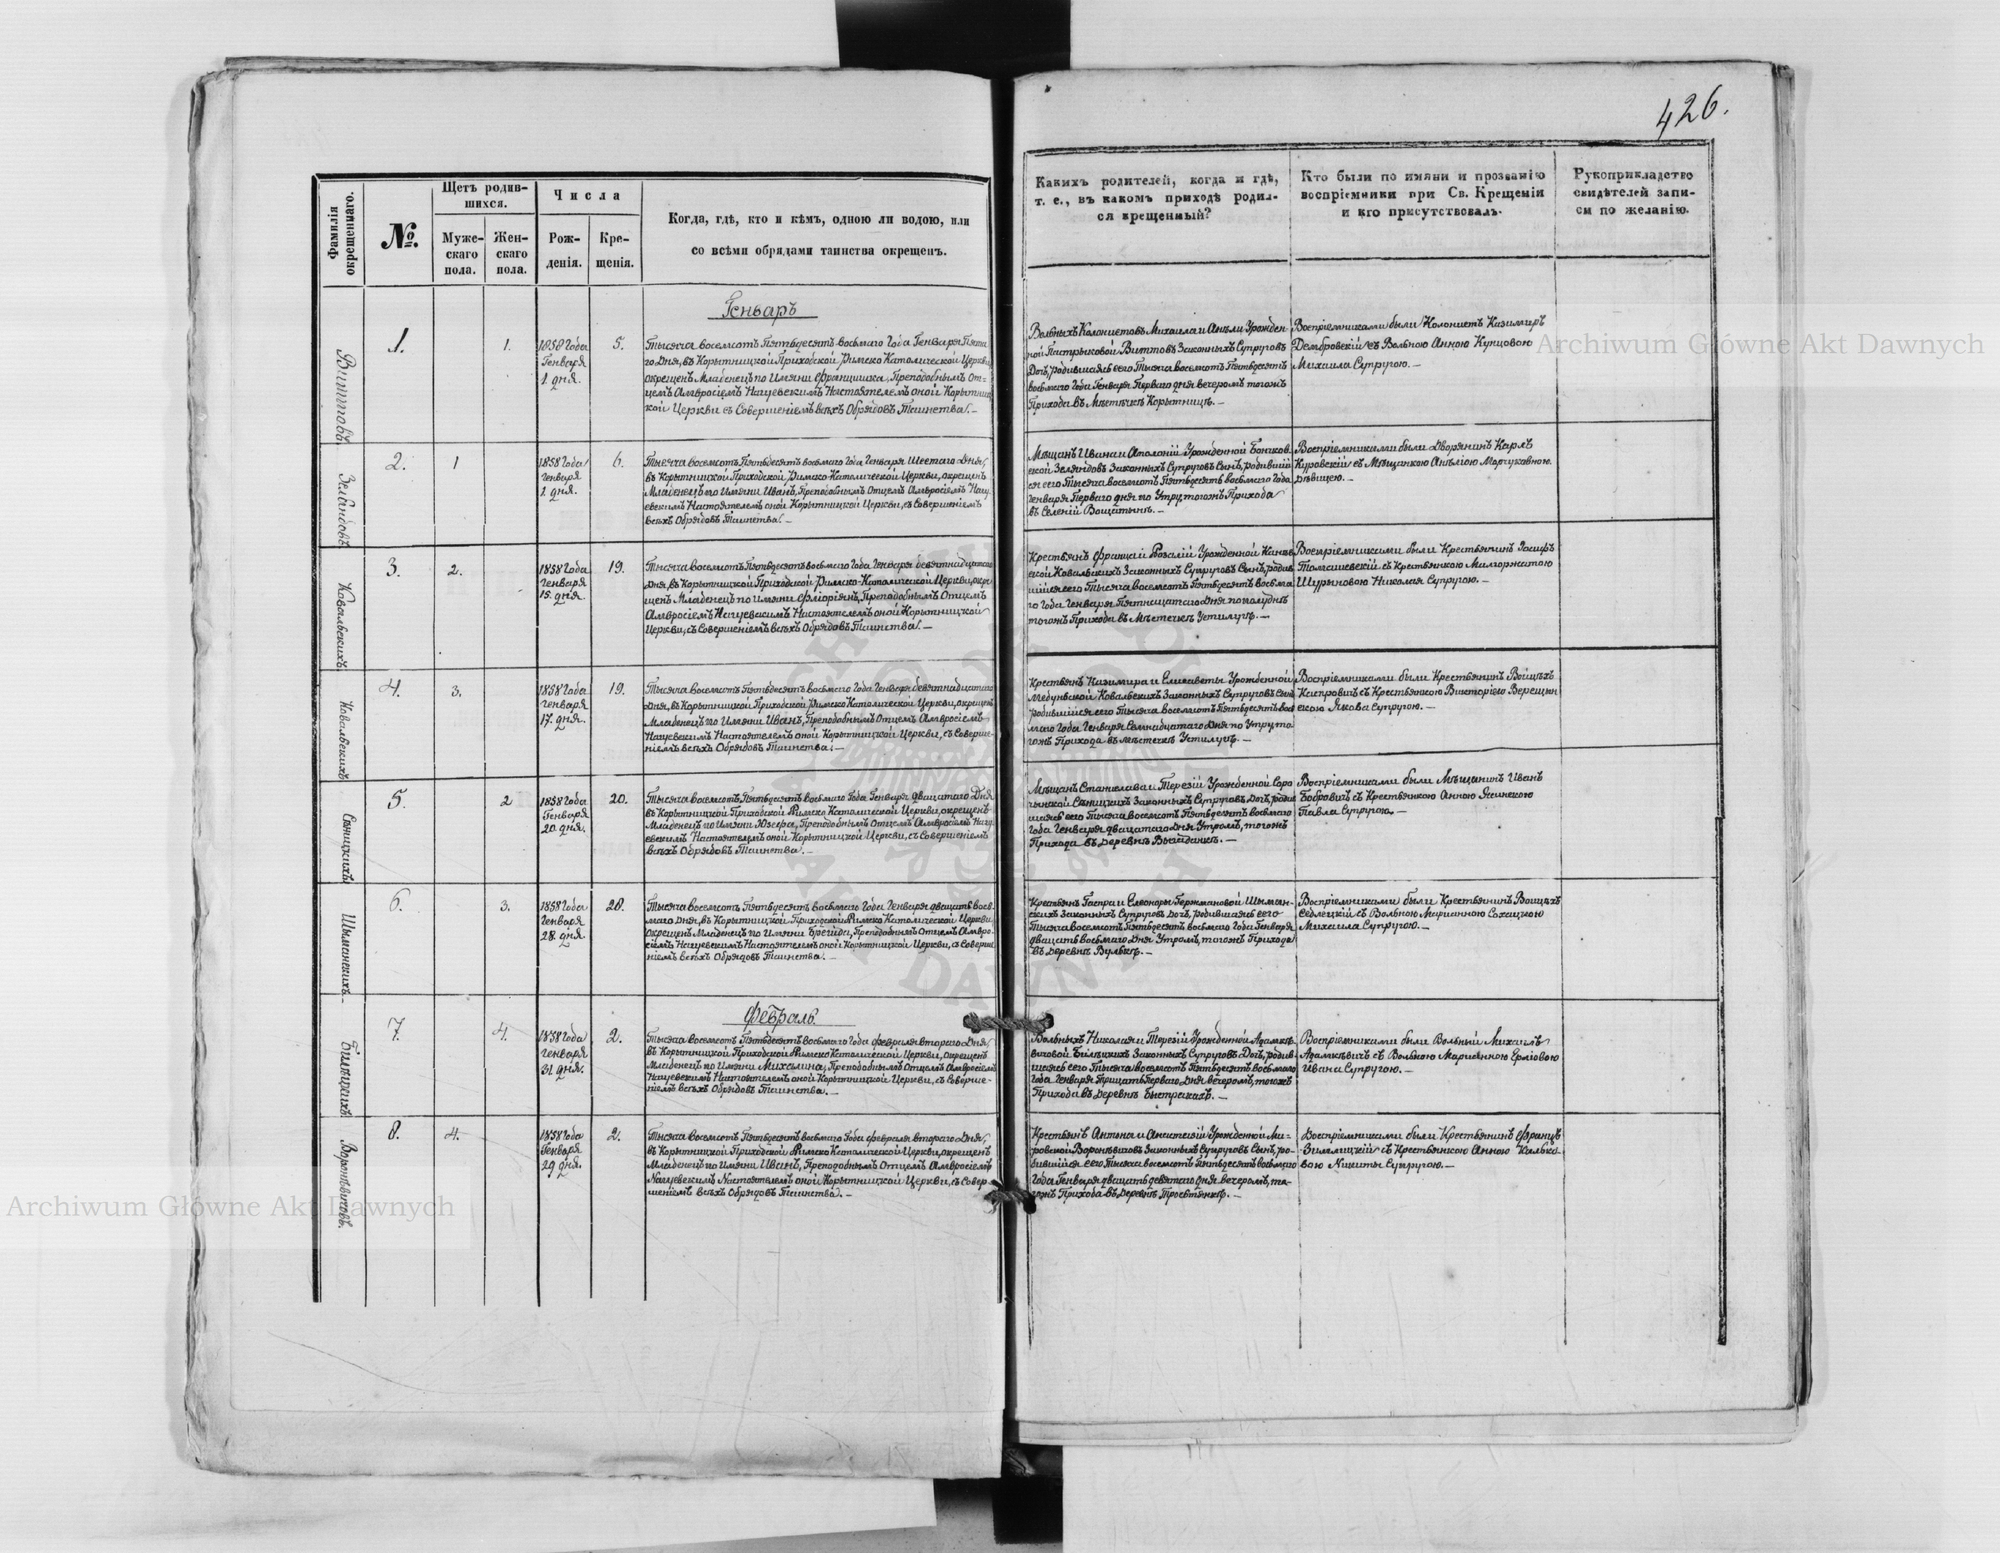 426.
Фамилія
окрещеннаго.
№
Щетъ родив-
шихся.
Муже-
скаго
пола.
Жен-
скаго
пола.
Числа
Рож-
денія.
Кре-
щенія.
Когда, гдѣ, кто и кѣмъ, одною ли водою, или
со всѣми обрядами таинства окрещенъ.
Какихъ родителей, когда и гдѣ,
т. е., въ какомъ приходѣ родил-
ся крещенный?
Кто были по имяни и прозванію
воспріемники при Св. Крещеніи
и кто присутствовалъ.
Рукоприкладство
свидѣтелей запи-
си по желанію.
Генварь
Виттовъ
1.
1.
1858 Года
Генваря
1 дня.
5.
Тысяча восемсотъ Пятьдесятъ восьмаго Года Генваря Пята-
го Дня, въ Корытницкой Приходской Римско Католической Церкви,
окрещенъ Младенецъ по Имяни Францишка, Преподобнымъ От-
цемъ Амвросіемъ Нацевскимъ Настоятелемъ оной Корытниц-
кой Церкви съ Совершеніемъ всѣхъ Обрядовъ Таинства. —
Вольныхъ Колонистовъ Михаила и Анели Урожден-
ной Виттовъ Законныхъ Супруговъ
Дочь, родившаяся сего Тысяча восемсотъ Пятьдесятъ
восьмаго Года Генваря Перваго дня вечеромъ тогожъ
Прихода въ Мѣстечкѣ Корытницѣ. —
Воспріемниками были Колонистъ Казимиръ
Домбровскій съ Вольною Анною Кунцовою
Михаила Супругою. —
2.
1
1858 Года
Генваря
1 дня.
6.
Тысяча восемсотъ Пятьдесятъ восьмаго Года Генваря Шестаго Дня,
въ Корытницкой Приходской Римско-Католической Церкви, окрещенъ
Младенецъ по Имяни Иванъ, Преподобнымъ Отцемъ Амвросіемъ Нац-
евскимъ Настоятелемъ оной Корытницкой Церкви, съ Совершеніемъ
всѣхъ Обрядовъ Таинства. —
Мѣщанъ Ивана и Аполоніи Урожденной
Законныхъ Супруговъ Сынъ, родивший
ся сего Тысяча восемсотъ Пятьдесятъ восьмаго Года
Генваря Перваго дня по Утру тогожъ Прихода
въ Селеніи Вощатынѣ. —
Воспріемниками были Дворянинъ Карлъ
Куровскій съ Мѣщанкою Анѣліою
дѣвицею. —
Ковальскихъ
3.
2.
1858 Года
Генваря
15. дня.
19.
Тысяча восемсотъ Пятьдесятъ восьмаго Года Генваря девятнадцатаго
Дня, въ Корытницкой Приходской Римско-Католической Церкви, окре-
щенъ Младенецъ по Имяни Флоріянъ, Преподобнымъ Отцемъ
Амвросіемъ Нацевскимъ Настоятелемъ оной Корытницкой
Церкви, съ Совершеніемъ всѣхъ Обрядовъ Таинства. —
Крестьянъ Розаліи Урожденной
Ковальскихъ Законныхъ Супруговъ Сынъ, родив
шійся сего Тысяча восемсотъ Пятьдесятъ восьма
го Года Генваря Пятнацатаго Дня по полудни
тогожъ Прихода въ Мѣстечкѣ Устилугѣ. —
Воспріемниками были Крестьянинъ Іосифъ
Томашевскій съ Крестьянкою
Николая Супругою. —
Ковальскихъ
4.
3.
1858 Года
Генваря
17. дня.
19.
Тысяча восемсотъ Пятьдесятъ восьмаго Года Генваря девятнадцатаго
Дня, въ Корытницкой Приходской Римско Католической Церкви, окрещенъ
Младенецъ по Имяни Иванъ, Преподобнымъ Отцемъ Амвросіемъ
Нацевскимъ Настоятелемъ оной Корытницкой Церкви, съ Соверше-
ніемъ всѣхъ Обрядовъ Таинства. —
Крестьянъ Казимира и Елисаветы Урожденной
Ковальскихъ Законныхъ Супруговъ Сынъ
родившійся сего Тысяча восемсотъ Пятьдесятъ вось
маго Года Генваря Семнадцатаго Дня по Утру то
гожъ Прихода въ мѣстечкѣ Устилугѣ. —
Воспріемниками были Крестьянинъ Войцѣхъ
съ Крестьянкою Викторіею Верещин
скою Якова Супругою. —
Сѣницкихъ
5.
2
1858 Года
Генваря
20. дня.
20.
Тысяча восемсотъ Пятьдесятъ восьмаго Года Генваря двацатаго Дня
въ Корытницкой Приходской Римско Католической Церкви, окрещенъ
Младенецъ по Имяни Юзефа, Преподобнымъ Отцемъ Амвросіемъ Нац-
евскимъ Настоятелемъ оной Корытницкой Церкви, съ Совершеніемъ
всѣхъ Обрядовъ Таинства. —
Мѣщанъ Станислава и Терезіи Урожденной
Сѣницкихъ Законныхъ Супруговъ Дочь, родив
шаяся сего Тысяча восемсотъ Пятьдесятъ восьмаго
Года Генваря двацатаго Дня Утромъ, тогожъ
Прихода въ Деревнѣ —
Воспріемниками были Мѣщанинъ Иванъ
Бобровичъ съ Крестьянкою Анною Ясинскою
Павла Супругою. —
Шыманскихъ
6.
3.
1858 Года
Генваря
28. дня.
28.
Тысяча восемсотъ Пятьдесятъ восьмаго Года Генваря двацать вось-
маго Дня, въ Корытницкой Приходской Римско Католической Церкви
Окрещенъ Младенецъ по Имяни Бригіда, Преподобнымъ Отцемъ Амвро-
сіемъ Нацевскимъ Настоятелемъ оной Корытницкой Церкви, съ Соверше
ніемъ всѣхъ Обрядовъ Таинства. —
Крестьянъ Гаспра и Елеоноры Гержмановой Шыман-
скихъ Законныхъ Супруговъ Дочь, родившаяся сего
Тысяча восемсотъ Пятьдесятъ восьмаго Года Генваря
двацать восьмаго Дня Утромъ, тогожъ Прихода
въ Деревнѣ Вулькѣ. —
Воспріемниками были Крестьянинъ Войцѣхъ
Седлецкій съ Вольною Марианною Сохацкою
Михаила Супругою. —
Февраль.
Билецкихъ
7.
4.
1858 Года
Генваря
31 дня.
2.
Тысяча восемсотъ Пятьдесятъ восьмаго Года Февраля втораго Дня,
въ Корытницкой Приходской Римско Католической Церкви, окрещенъ
Младенецъ по Имяни Михалина, Преподобнымъ Отцемъ Амвросіемъ
Нацевскимъ Настоятелемъ оной Корытницкой Церкви, съ Соверше-
ніемъ всѣхъ Обрядовъ Таинства. —
Вольныхъ Николая и Терезіи Урожденной Адамкѣ-
вичовой Билецкихъ Законныхъ Супруговъ Дочь, родив-
шаяся сего Тысяча восемсотъ Пятьдесятъ восьмаго
Года Генваря Трицать Перваго Дня вечеромъ, тогожъ
Прихода въ Деревнѣ Быстракахъ. —
Воспріемниками были Вольный Михаилъ
Адамкѣвичъ съ Вольною Марианною
Ивана Супругою. —
Воронѣвичовъ.
8.
4.
1858 Года
Генваря
29 дня.
2.
Тысяча восемсотъ Пятьдесятъ восьмаго Года Февраля втораго Дня,
въ Корытницкой Приходской Римско Католической Церкви, окрещенъ
Младенецъ по Имяни Иванъ, Преподобнымъ Отцемъ Амвросіемъ
Нацевскимъ Настоятелемъ оной Корытницкой Церкви, съ Совер-
шеніемъ всѣхъ Обрядовъ Таинства. —
Крестьянъ Антона и Анастасіи Урожденной Ми-
ровской Воронѣвичовъ Законныхъ Супруговъ Сынъ, ро-
дившійся сего Тысяча восемсотъ Пятьдесятъ восьмаго
Года Генваря двацать девятаго дня вечеромъ, то-
гожъ Прихода въ Деревнѣ —
Воспріемниками были Крестьянинъ Францъ
съ Крестьянкою Анною
Никиты Супругою. —
Archiwum Główne Akt Dawnych
Archiwum Główne Akt Dawnych